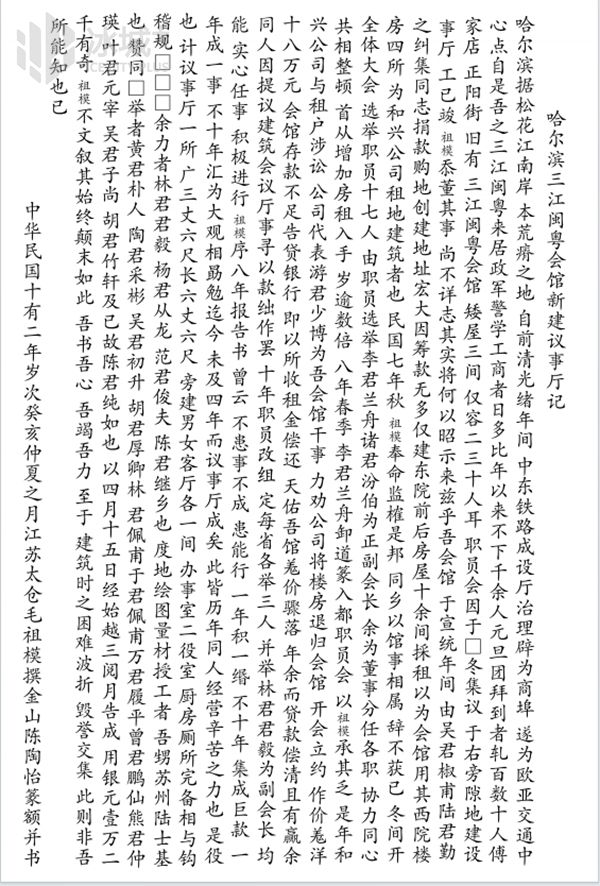 哈尔滨三江闽粤会馆新建议事厅记
哈尔滨据松花江南岸 本荒瘠之地 自前清光绪年间 中东铁路成设厅治理辟为商埠 遂为欧亚交通中
心点自是吾之三江闽粤来居政军警学工商者日多比年以来不下千余人元旦团拜到者轧百数十人傅
家店 正阳街 旧有 三江闽粤会馆 矮屋三间 仅容二三十人耳 职员会因于□冬集议 于右旁隙地建设
事厅 工已竣 祖模忝董其事 尚不详志其实将何以昭示来兹乎吾会馆 于宣统年间 由吴君椒甫陆君勤
之纠集同志捐款购地创建地址宏大因筹款无多仅建东院前后房屋十余间採租以为会馆用其西院楼
房四所 为和兴公司租地建筑者也 民国七年秋 祖模奉命监榷是邦 同乡以馆事相属 辞不获已 冬间开
全体大会 选举职员十七人 由职员选举李君兰舟诸君汾伯为正副会长 余为董事分任各职 协力同心
共相整顿 首从增加房租入手 岁逾数倍 八年春季 李君兰舟卸道篆入都职员会 以祖模承其乏 是年和
兴公司与租户涉讼 公司代表游君少博为吾会馆干事 力劝公司将楼房退归会馆 开会立约 作价羌洋
十八万元 会馆存款不足告贷银行 即以所收租金偿还 天佑吾馆羌价骤落 年余而贷款偿清且有赢余
同人因提议建筑会议厅事寻以款绌作罢 十年职员改组 定每省各举三人 并举林君君毅为副会长 均
能 实心任事 积极进行 祖模序八年报告书 曾云 不患事不成 患能行 一年积一缗 不十年 集成巨款 一
年成一事 不十年汇为大观相勗勉迄今 未及四年而议事厅成矣 此皆历年同人经营辛苦之力也 是役
也 计议事厅一所 广三丈六尺长六丈六尺 旁建男女客厅各一间 办事室二役室 厨房厕所完备相与钩
稽规□□□余力者林君君毅 杨君从龙 范君俊夫 陈君继乡也 度地绘图量材授工者 吾甥苏州陆士基
也 赞同□举者黄君朴人 陶君采彬 吴君初升 胡君厚卿林 君佩甫于君佩甫万君履平曾君鹏仙熊君仲
瑛 叶君元宰 吴君子尚 胡君竹轩及已故陈君纯如也 以四月十五日经始越三阅月告成 用银元壹万二
千有奇 祖模不文叙其始终颠末如此 吾书吾心 吾竭吾力 至于 建筑时之困难波折 毁誉交集 此则非吾
所能知也已
中华民国十有二年岁次癸亥仲夏之月江苏太仓毛祖模撰金山陈陶怡篆额并书
冰城+
ICECITY PLUS